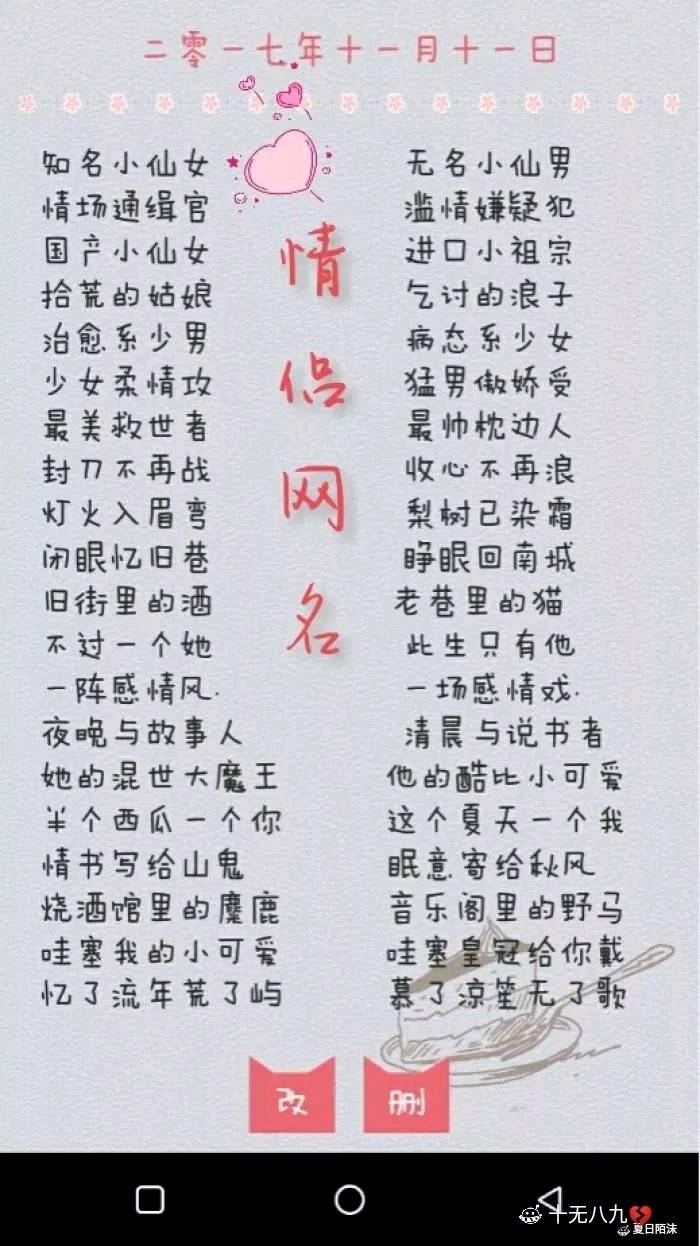 二零一七年十一月十一日
情侣网名
知名小仙女 无名小仙男
情场通缉官 滥情嫌疑犯
国产小仙女 进口小祖宗
拾荒的姑娘 乞讨的浪子
治愈系少男 病态系少女
少女柔情攻 猛男傲娇受
最美救世者 最帅枕边人
封刀不再战 收心不再浪
灯火入眉弯 梨树已染霜
闭眼忆旧巷 睁眼回南城
旧街里的酒 老巷里的猫
不过一个她 此生只有他
一阵感情风. 一场感情戏.
夜晚与故事人 清晨与说书者
她的混世大魔王 他的酷比小可爱
半个西瓜一个你 这个夏天一个我
情书写给山鬼 眠意寄给秋风
烧酒馆里的麋鹿 音乐阁里的野马
哇塞我的小可爱 哇塞皇冠给你戴
忆了流年荒了屿 慕了凉笙无了歌
改 删
十无八九💔
夏日陌沫